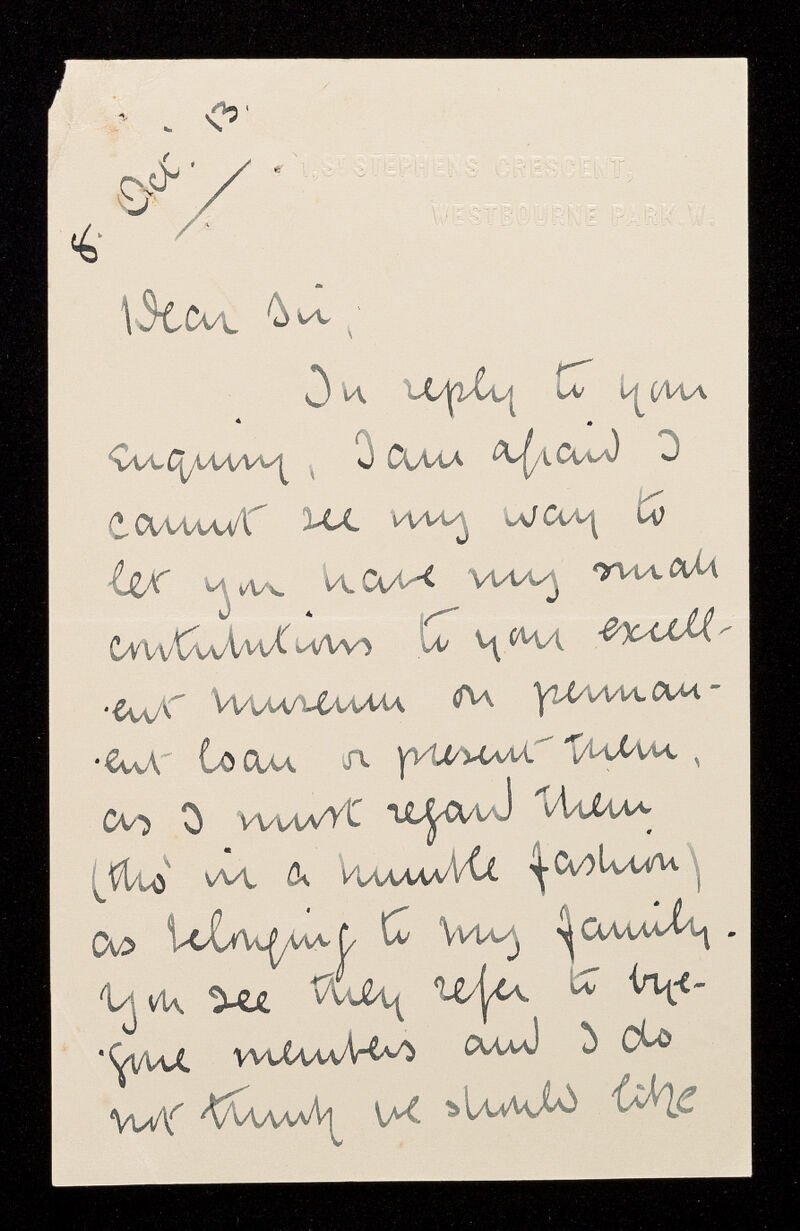 8. Oct. 13.
1, ST STEPHEN'S CRESCENT,
WESTBOURNE PARK. W.
Dear Sir,
In reply to your
enquiry, I am afraid I
cannot see my way to
let you have my small
contributions to your excell-
-ent museum on perman-
-ent loan or present them,
as I must regard them
(tho' in a humble fashion)
as belonging to my family.
You see they refer to bye-
-gone members and I do
not think we should like